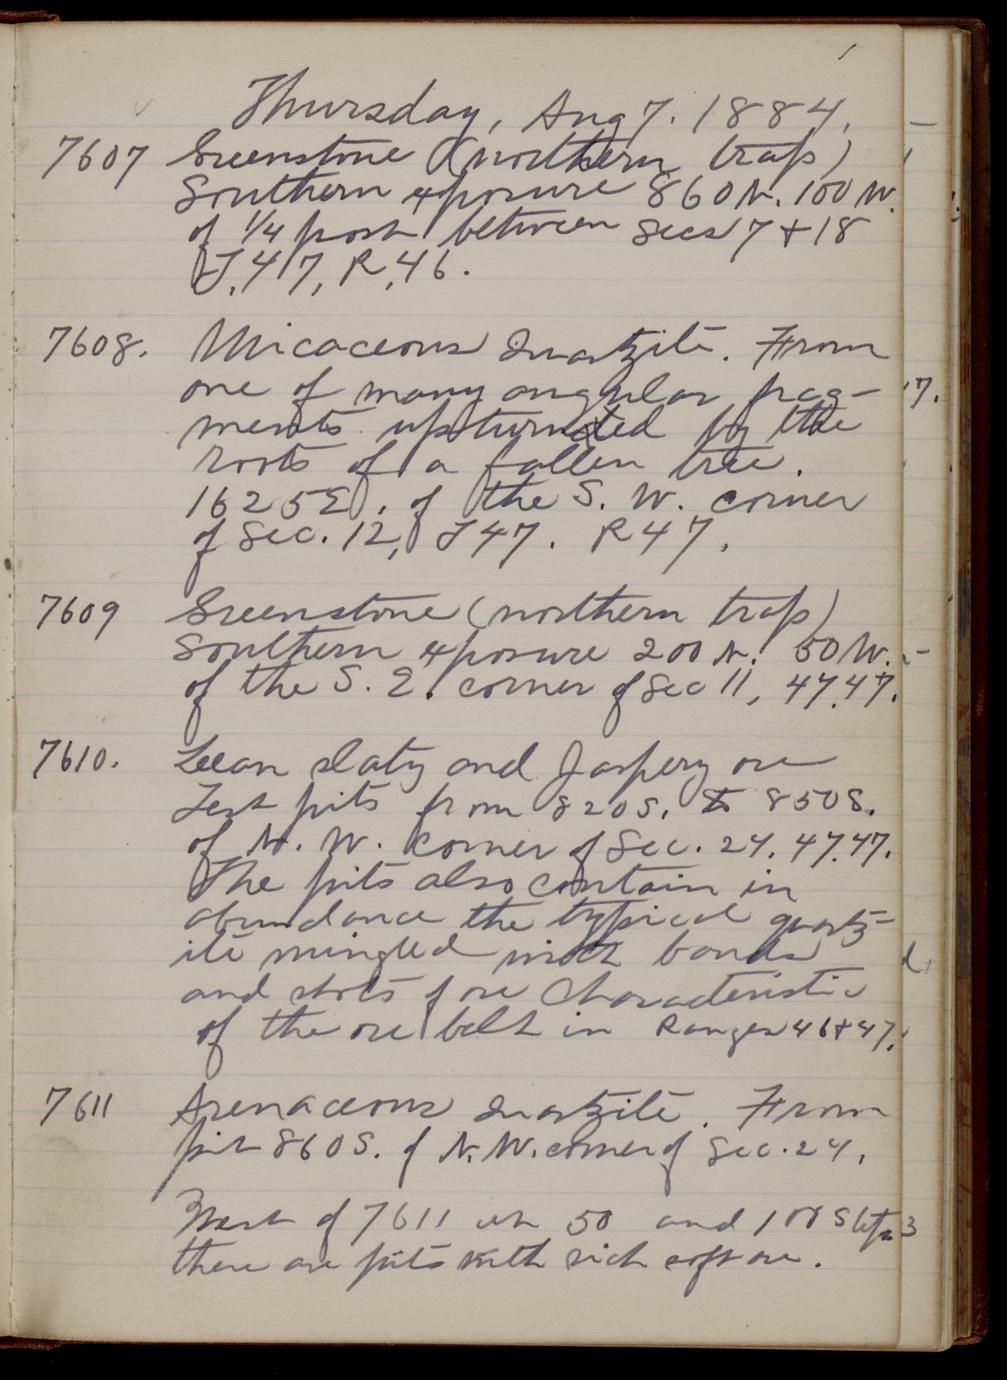 Thursday, Aug 7. 1884.
7607 Greenstone (northern trap)
Southern exposure 860 N. 100 W.
of 1/4 post between Secs 7 + 18
T. 47, R. 46.
7608. Micaceous Quartzite. From
one of many angular frag-
ments upturned by the
roots of a fallen tree.
1625 E. of the S. W. corner
of Sec. 12, T 47. R 47.
7609 Greenstone (northern trap)
Southern exposure 200 N. 50 W.
of the S. E. corner of Sec 11, 47.47.
7610. Lean slaty and Jaspery ore
Test pits from 820 S. to 850 S.
of N. W. corner of Sec. 24. 47.47.
The pits also contain in
abundance the typical quartz-
ite mingled with bands
and shots of ore characteristic
of the ore belt in Ranges 46 + 47.
7611 Arenaceous Quartzite. From
pit 860 S. of N. W. corner of Sec. 24.
West of 7611 at 50 and 100 Steps
there are pits with rich soft ore.